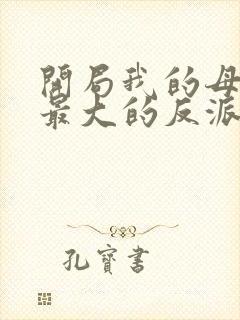 開局我的母
最大的反派
孔寶書